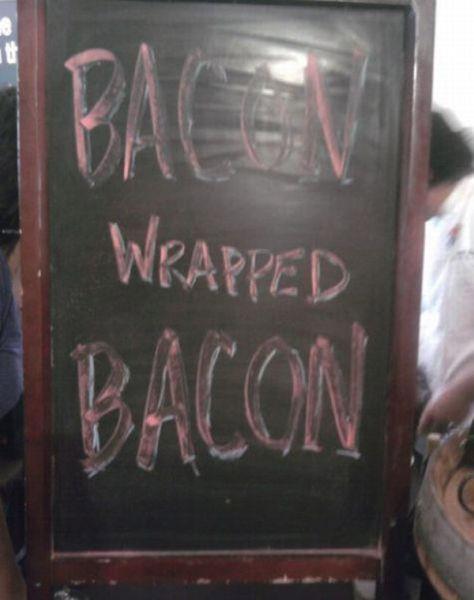 BACON
WRAPPED
BACON